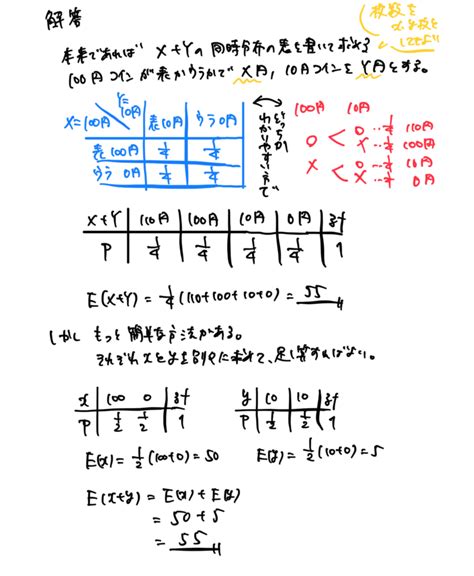 解答
枚数を
x,y枚と
してもよい
本来であれば X+Yの同時分布の表を書いて求める
100円コインが表かうらかで X円, 10円コインを Y円とする。
X=100円 Y=10円 表10円 うら0円
表100円 1/4 1/4
うら 0円 1/4 1/4
どっちか
わかりやすい方で
100円 10円
○ < ○ … 1/4 110円
× … 1/4 100円
× < ○ … 1/4 10円
× … 1/4 0円
X+Y 110円 100円 10円 0円 計
P 1/4 1/4 1/4 1/4 1
E(X+Y) = 1/4 (110+100+10+0) = 55
しかし もっと簡単な方法がある。
それぞれxとyを別々に求めて、足し算すればよい。
x 100 0 計
P 1/2 1/2 1
y 10 10 計
P 1/2 1/2 1
E(x) = 1/2 (100+0) = 50
E(y) = 1/2 (10+0) = 5
E(x+y) = E(x) + E(y)
= 50 + 5
= 55